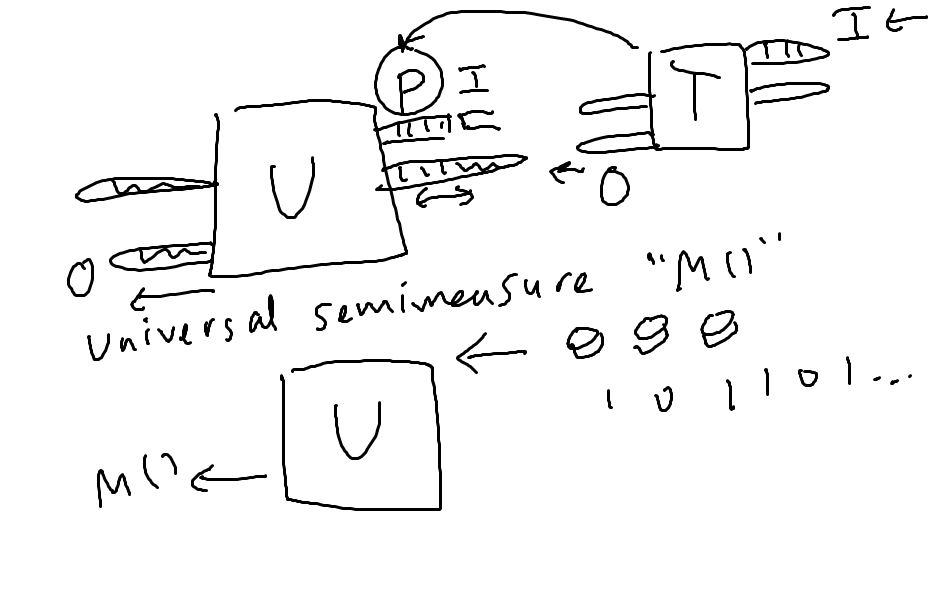 I
P I
T
U
O
O
Universal semimeasure "M()"
1 0 1 1 0 1 ...
U
M()